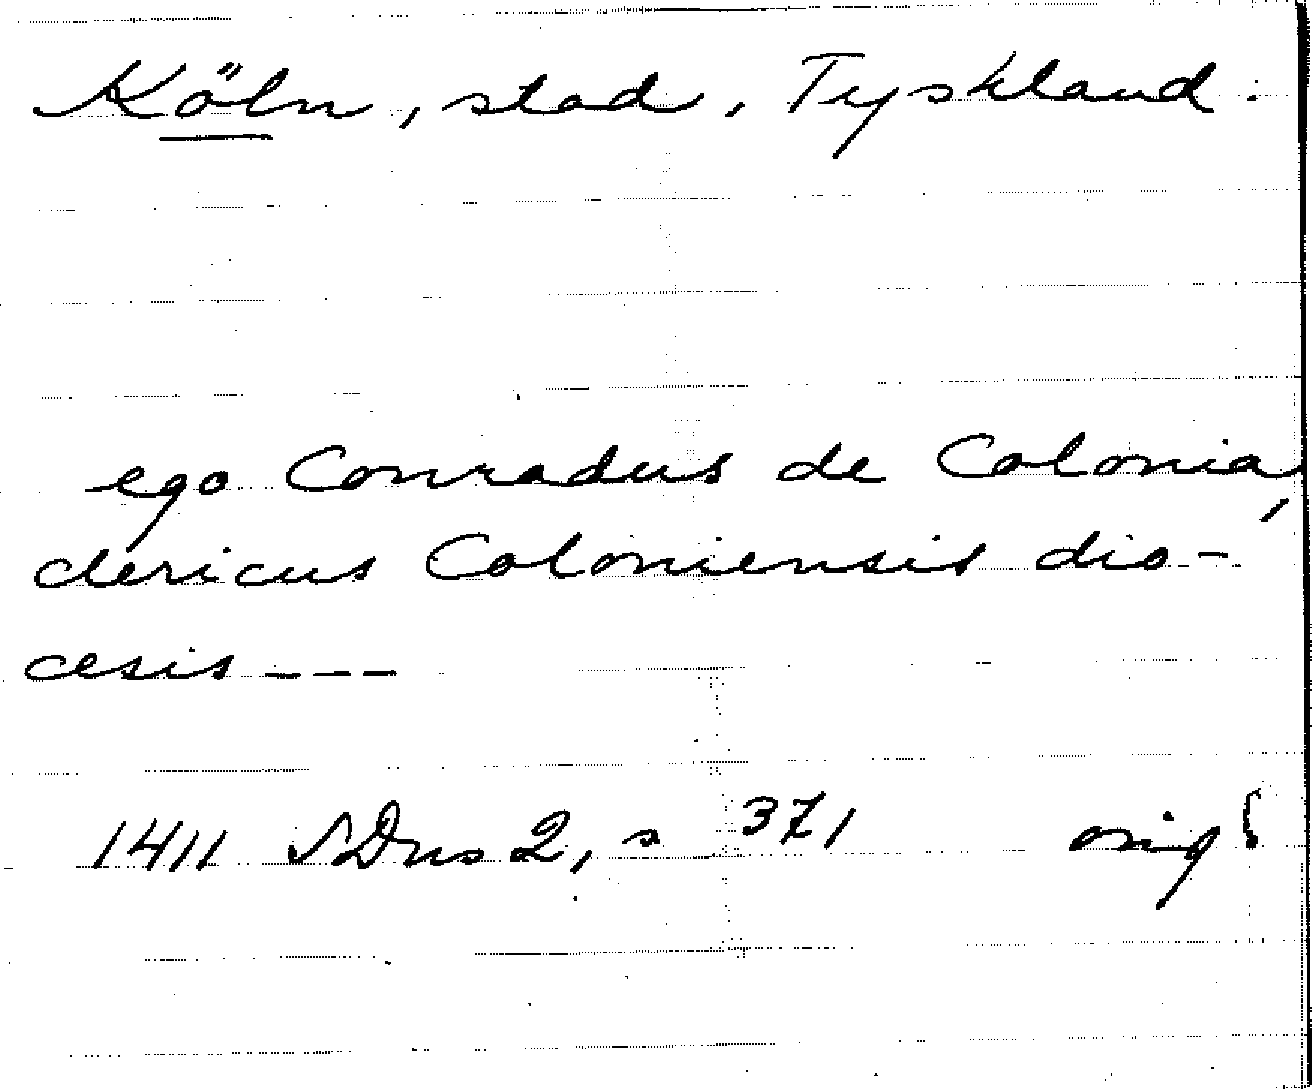 Köln, stad, Tyskland.
ego Conradus de Colonia,
clericus Coloniensis dio-
cesis ---
1411 SDns 2, s 371 orig!